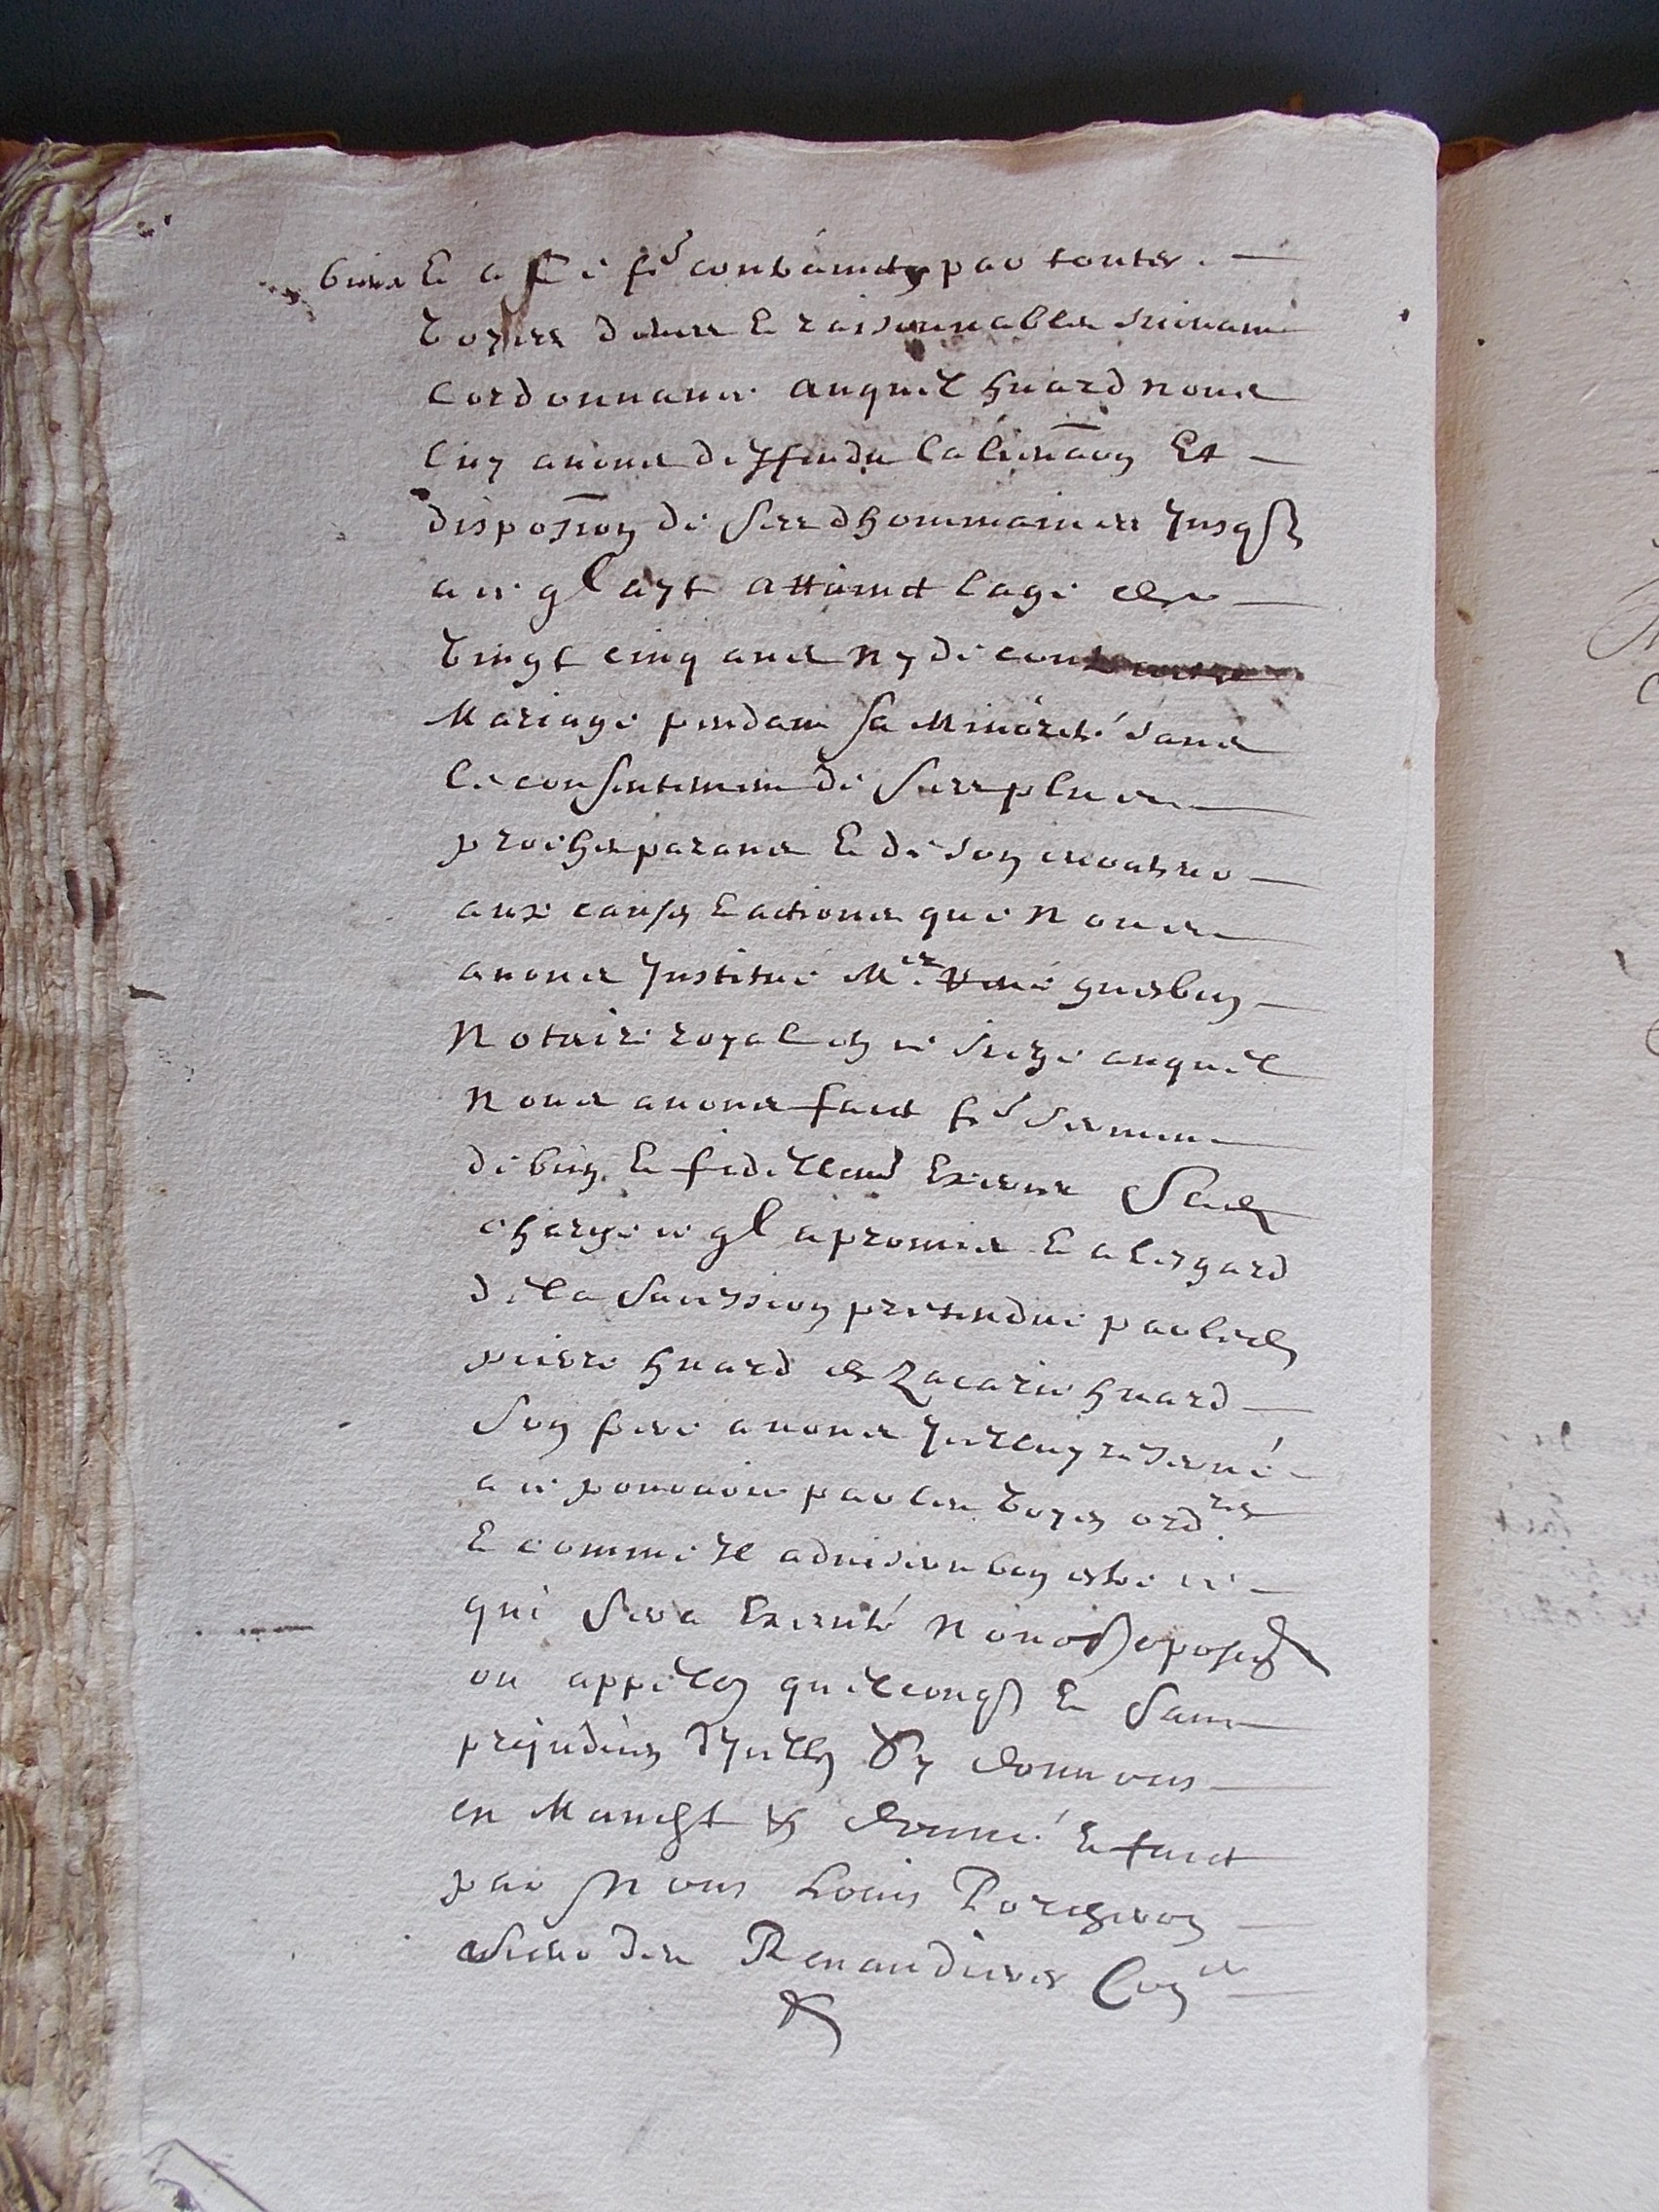 biens Et a ce fe contrainctz par toutes
voyes deues Et raisonnables suivant
lordonnance auquel huard nous
luy avons deffendu lalienaon Et
disposion de ses dhommaines Jusqs
a ce ql ayt attainct lage de
vingt cinq ans ny de contracter
Mariage pendant sa Minorité sans
le consentement de ses plus
proches parans Et de son curateur
aux causes Et actions que Nous
avons Institué Me René
Notaire royal en ce siege auquel
Nous avons faict fe serment
de bien Et fidellemt Exercer lad
charge ce ql a promis Et a lesgard
de la Sucession pretendue par led
pierre huard de Zacarie huard
Son frere avons Icelluy reservé
a ce pourvoir par les voyes ordres
Et comme Il advisera bon estre ce
qui Sera Executé Nonobs oposion
ou appellon quelconqs Et Sans
prejudice dIcelles Sy donnons
en Mandt &c donné Et faict
par Nous Louis
Sieur des Renaudieres Coner